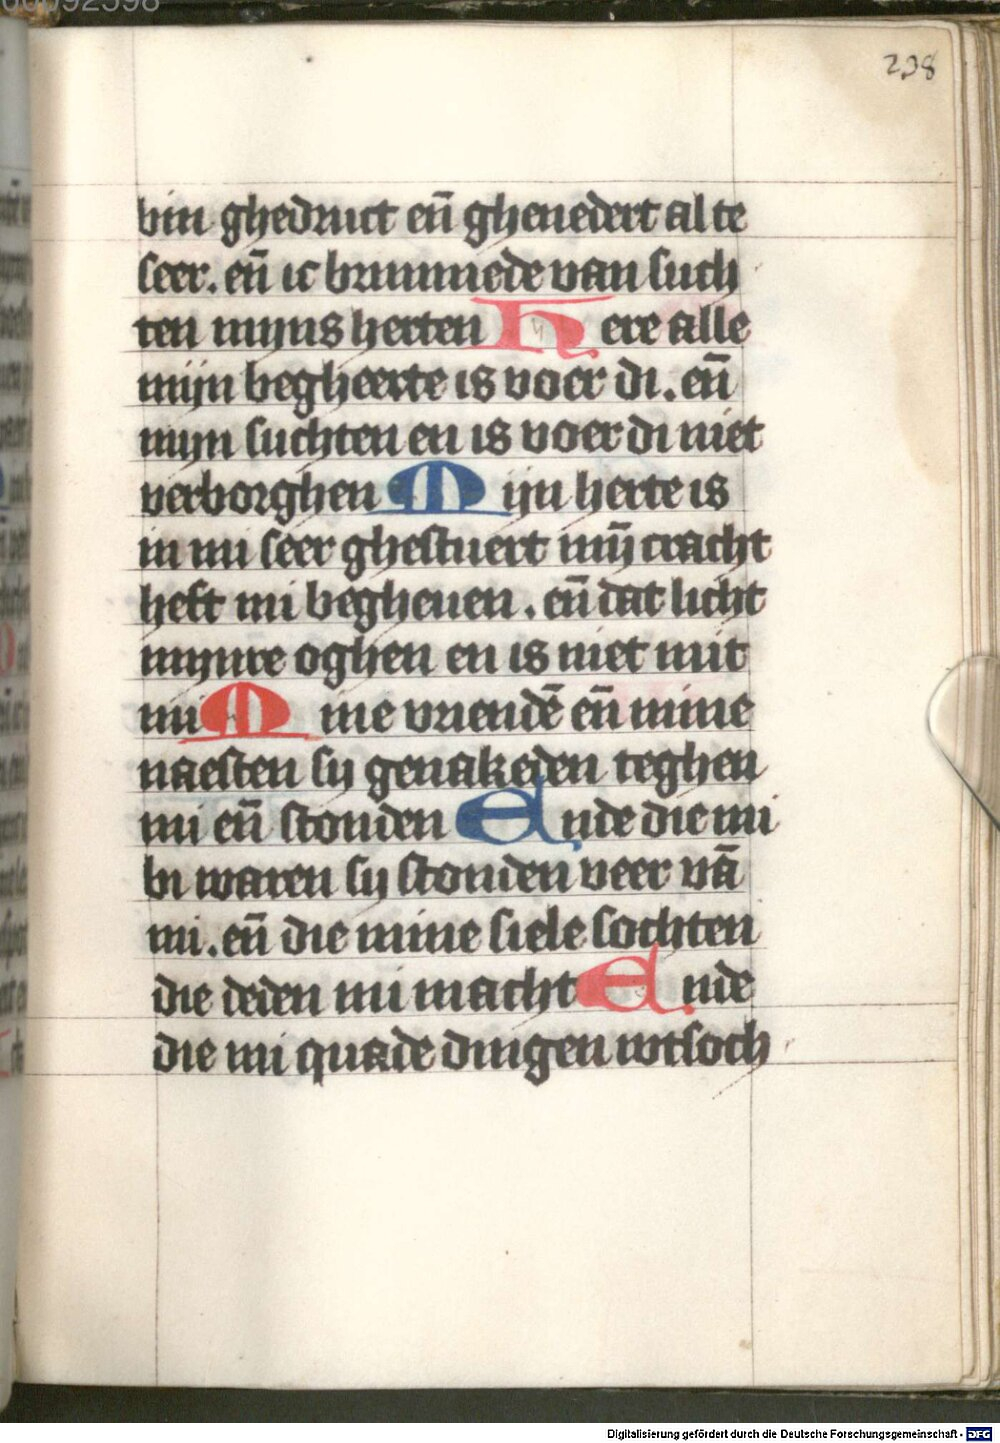 238
bin ghedruct eñ ghenedert al te
seer. eñ ic brummede van such
ten mijns herten Here alle
mijn begheerte is voer di. eñ
mijn suchten en is voer di niet
verborghen Mijn herte is
in mi seer ghestuert mȳ cracht
heft mi begheuen. eñ dat licht
mijnre oghen en is niet mit
mi Mine vriendē eñ mine
naesten sij genakeden teghen
mi eñ stonden Ende die mi
bi waren sij stonden veer vā
mi. eñ die mine siele sochten
die deden mi macht Ende
die mi quade dingen wtsoch
Digitalisierung gefördert durch die Deutsche Forschungsgemeinschaft - DFG